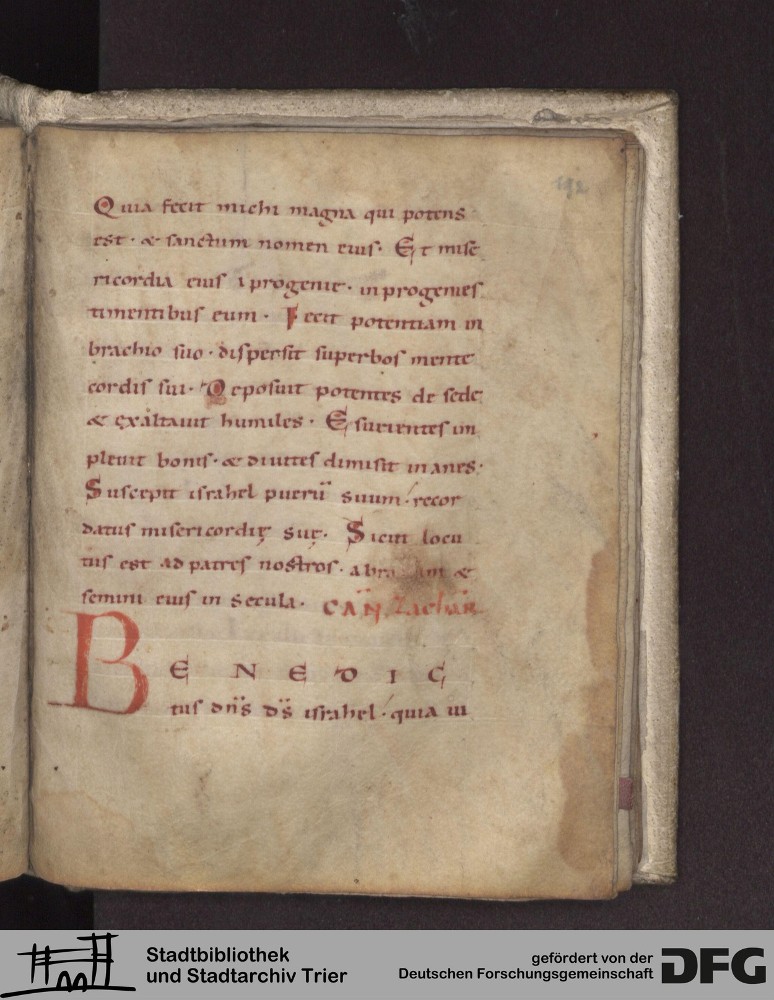 192
Quia fecit michi magna qui potens
est · & sanctum nomen eius · Et mise
ricordia eius i progenie · in progenies
timentibus eum · Fecit potentiam in
brachio suo · dispersit superbos mente
cordis sui · Deposuit potentes de sede
& exaltauit humiles · Esurientes im
pleuit bonis · & diuites dimisit inanes ·
Suscepit israhel pueru̅ suum · recor
datus misericordię suę · Sicut locu
tus est ad patres nostros · &
semini eius in secula · CAN̅ Zachar̅
BENEDIC
tus dn̅s ds̅ israhel · quia ui
Stadtbibliothek
und Stadtarchiv Trier
gefördert von der
Deutschen Forschungsgemeinschaft
DFG